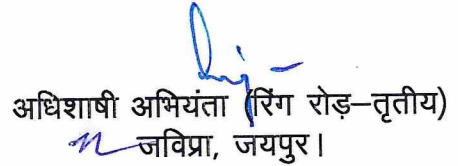 अधिशाषी अभियंता (रिंग रोड़–तृतीय)
जविप्रा, जयपुर।